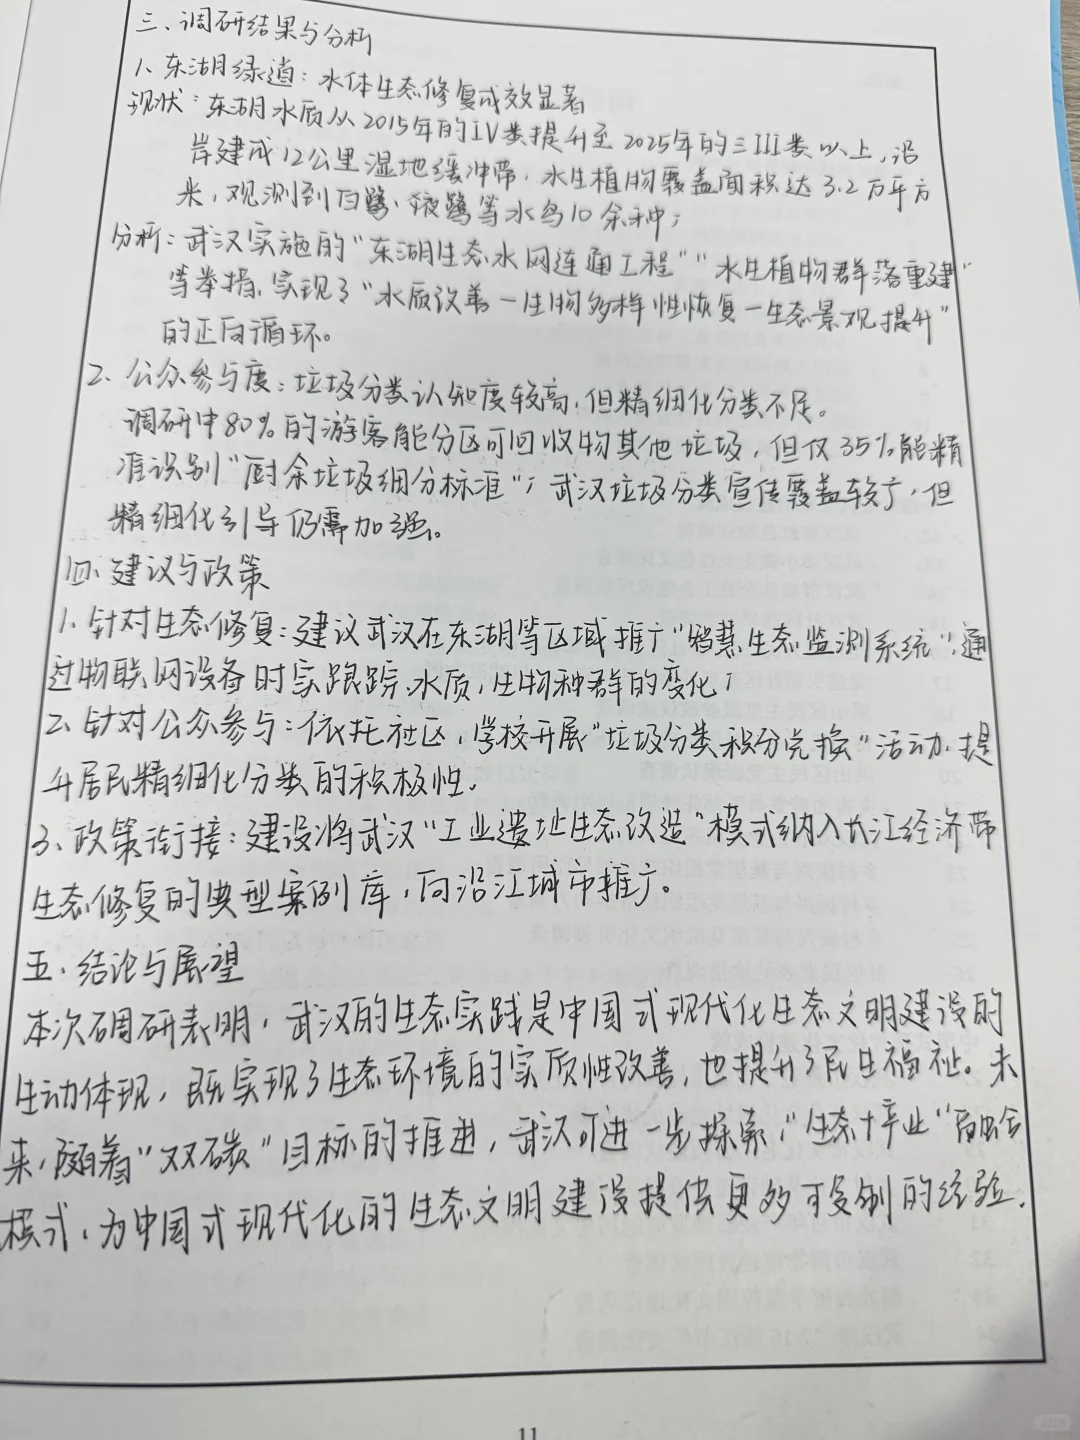 三、调研结果与分析
1、东湖绿道：水体生态修复成效显著
现状：东湖水质从2015年的IV类提升至2025年的三III类以上，沿
岸建成12公里湿地缓冲带，水生植物覆盖面积达3.2万平方
米，观测到白鹭、夜鹭等水鸟10余种；
分析：武汉实施的“东湖生态水网连通工程”“水生植物群落重建”
等举措，实现了“水质改善—生物多样性恢复—生态景观提升”
的正向循环。
2、公众参与度：垃圾分类认知度较高，但精细化分类不足。
调研中80%的游客能分区可回收物其他垃圾，但仅35%能精
准识别“厨余垃圾细分标准”；武汉垃圾分类宣传覆盖较广，但
精细化引导仍需加强。
四、建议与政策
1、针对生态修复：建议武汉在东湖等区域推广“智慧生态监测系统”，通
过物联网设备时实跟踪、水质，生物种群的变化；
2、针对公众参与：依托社区，学校开展“垃圾分类积分兑换”活动，提
升居民精细化分类的积极性。
3、政策衔接：建设将武汉“工业遗址生态改造”模式纳入长江经济带
生态修复的典型案例库，向沿江城市推广。
五、结论与展望
本次调研表明，武汉的生态实践是中国式现代化生态文明建设的
生动体现，既实现了生态环境的实质性改善，也提升了民生福祉。未
来，随着“双碳”目标的推进，武汉可进一步探索，“生态+产业”融合
模式，为中国式现代化的生态文明建设提供更多可复制的经验。
11